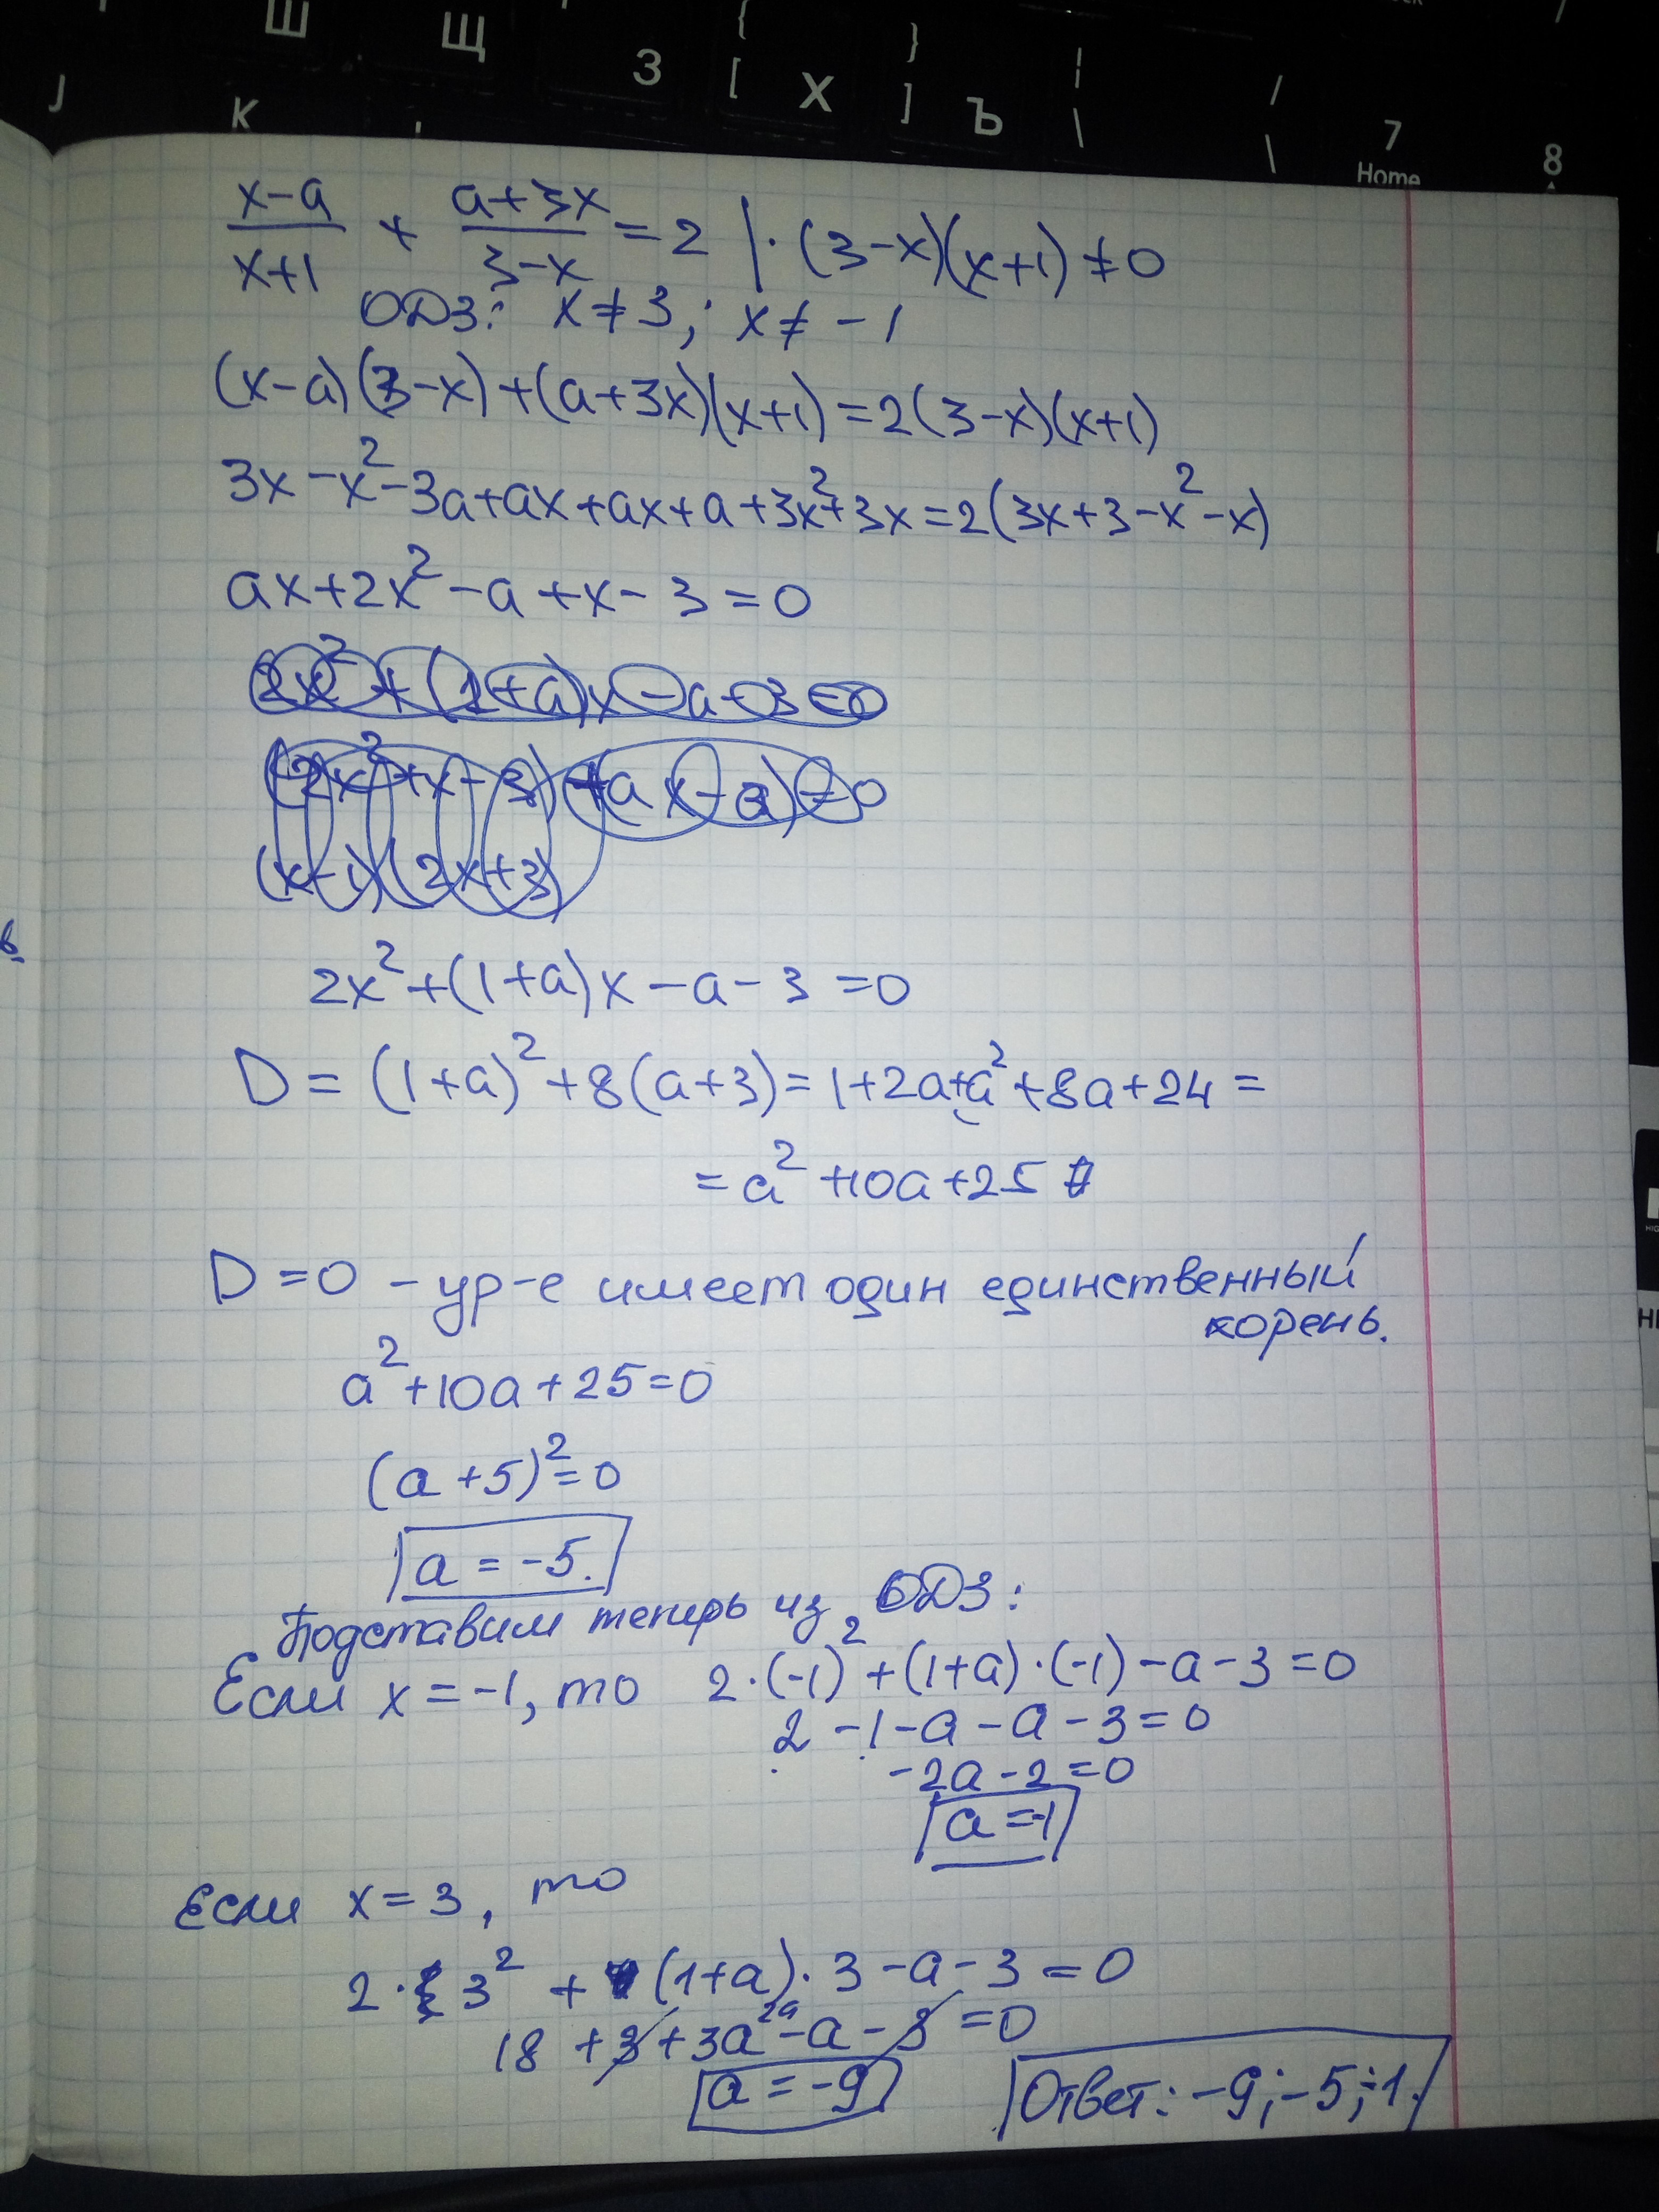 Ш Щ З { [ Х } ] Ъ | \ / \ 7 Home 8
J K
x-a/x+1 + a+3x/3-x = 2 | ·(3-x)(x+1) ≠ 0
ОДЗ: x ≠ 3; x ≠ -1
(x-a)(3-x)+(a+3x)(x+1)=2(3-x)(x+1)
3x-x²-3a+ax+ax+a+3x²+3x=2(3x+3-x²-x)
ax+2x²-a+x-3=0
2x²+(1+a)x-a-3=0
(2x²+x-3)+(ax-a)=0
(x-1)(2x+3)
2x²+(1+a)x-a-3=0
D=(1+a)²+8(a+3)=1+2a+a²+8a+24=
=a²+10a+25
D=0 - ур-е имеет один единственный
корень.
a²+10a+25=0
(a+5)²=0
a=-5.
Подставим теперь из ОДЗ:
Если x=-1, то 2·(-1)²+(1+a)·(-1)-a-3=0
2-1-a-a-3=0
-2a-2=0
a=-1
Если x=3, то
2·3²+(1+a)·3-a-3=0
2a
18+3+3a-a-3=0
a=-9
Ответ: -9; -5; -1.